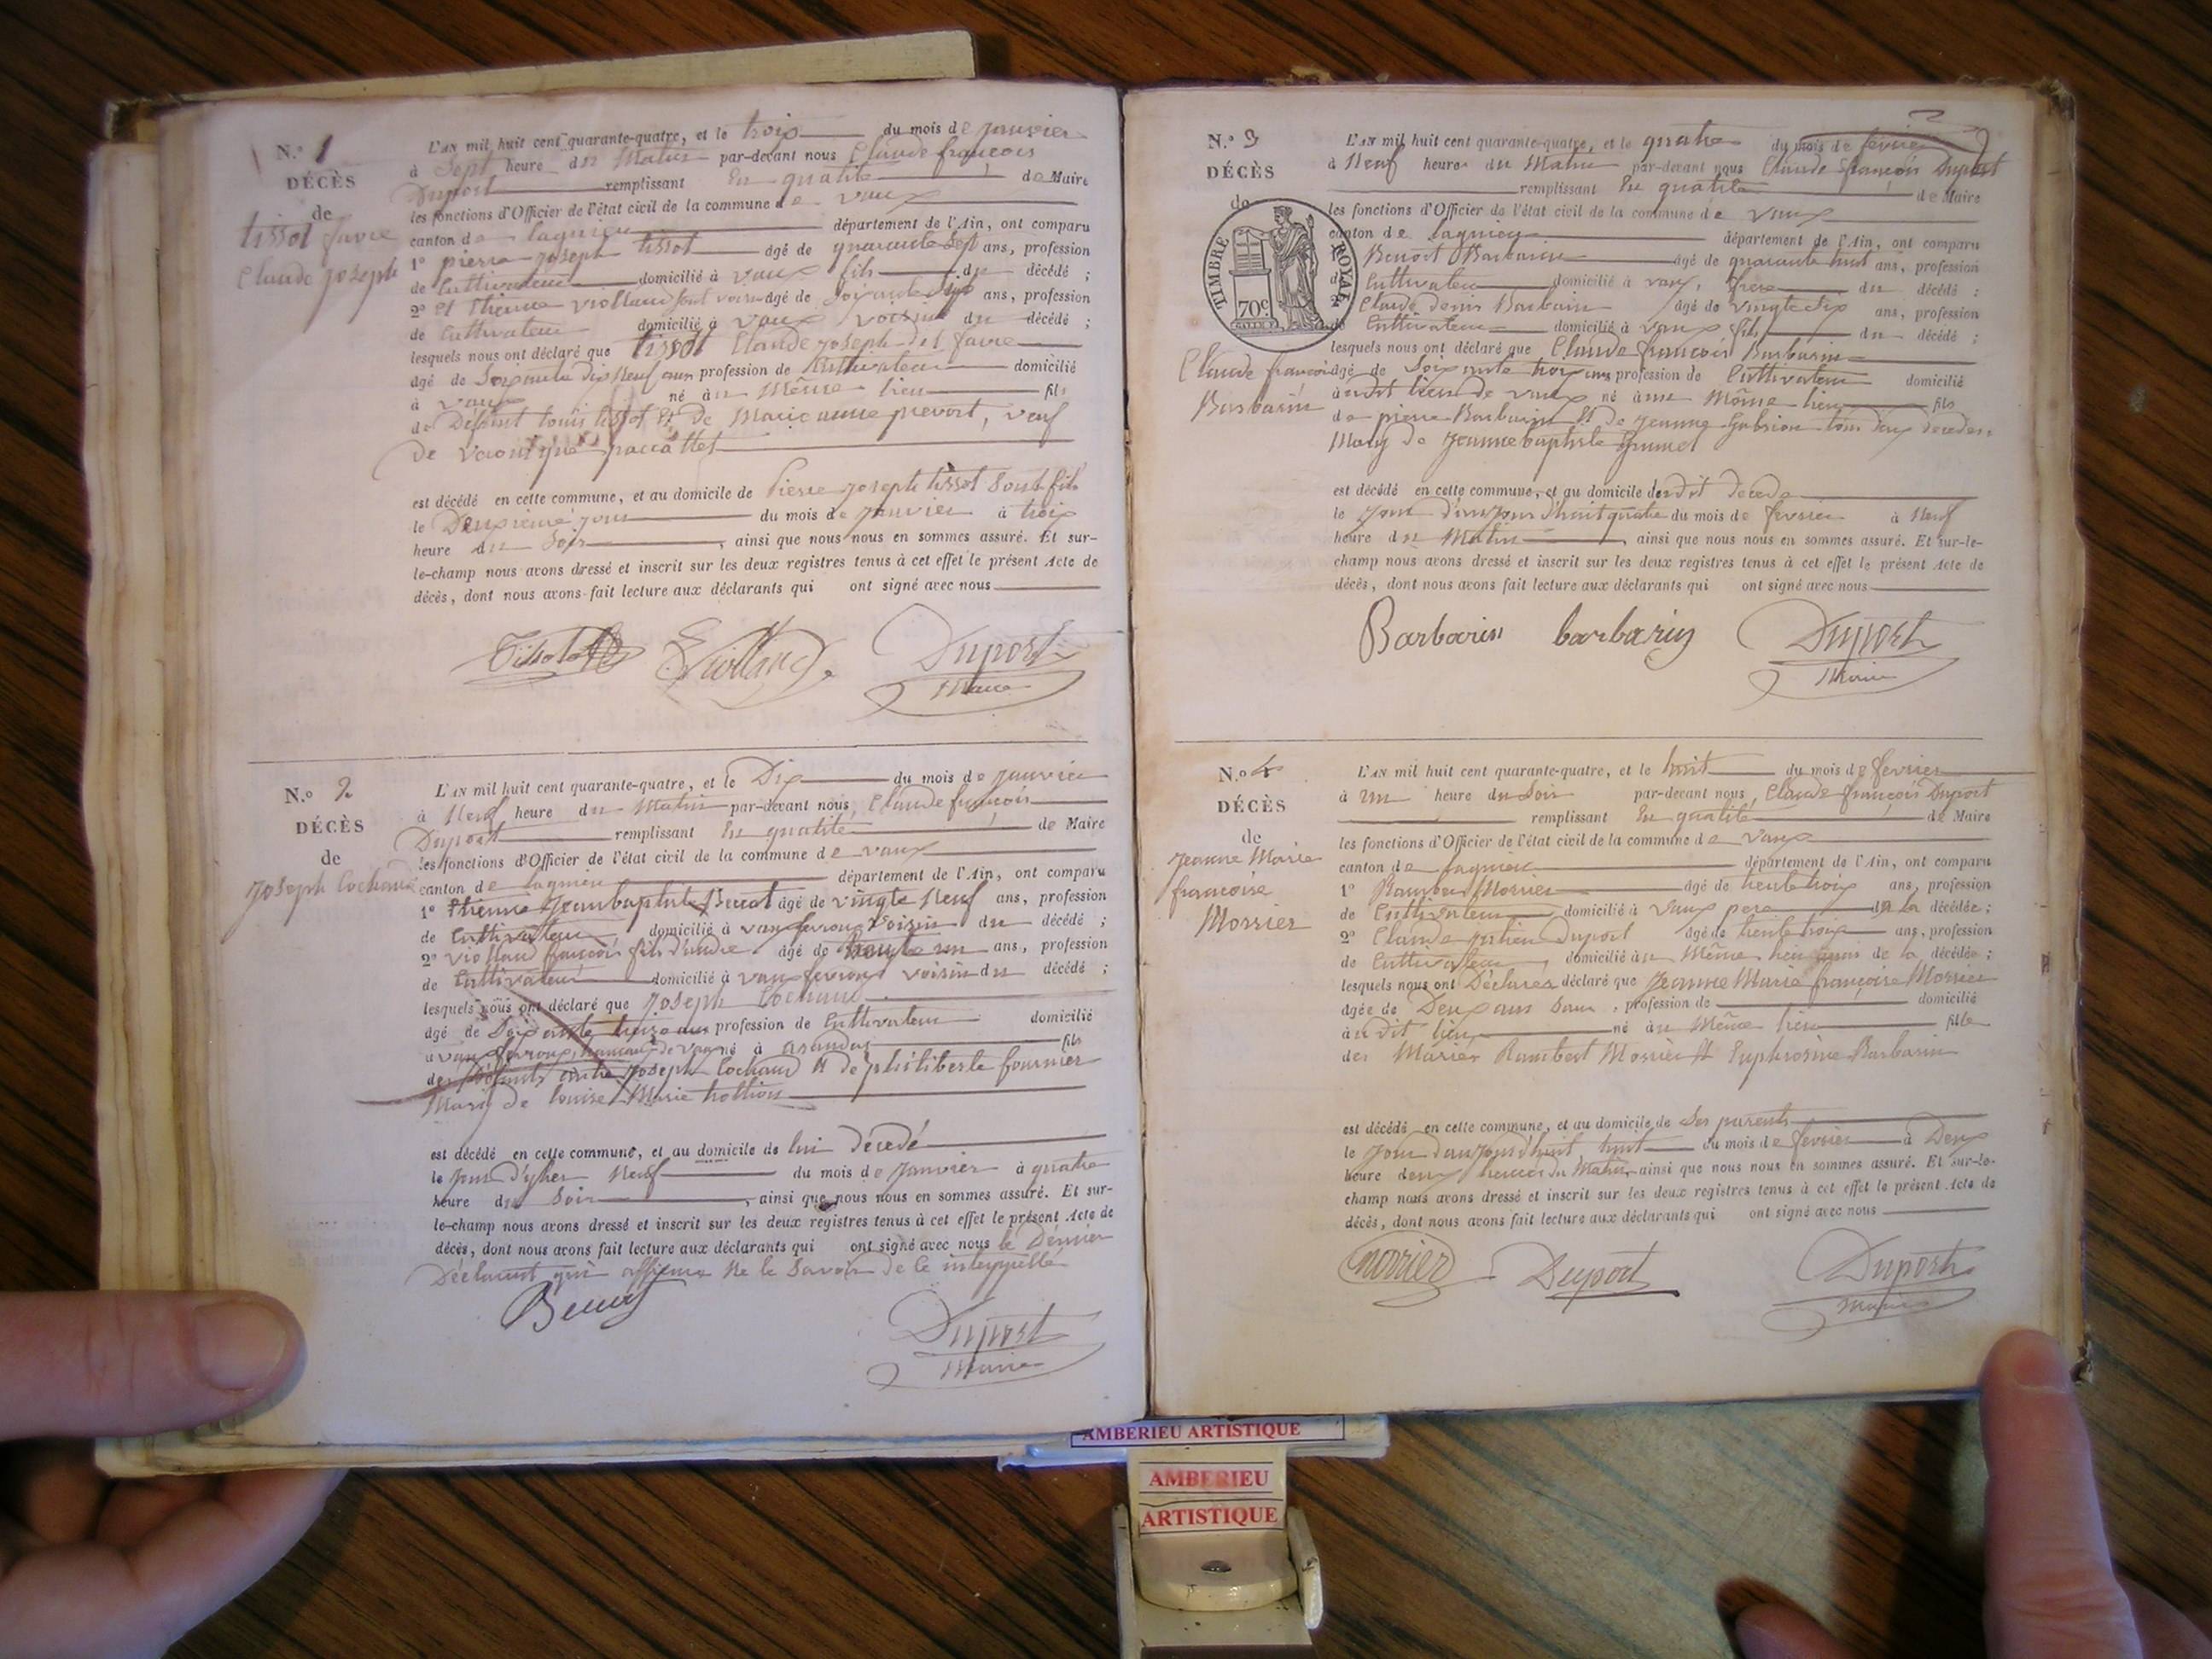 N.° 1
DÉCÈS
de
tissot favre
Claude joseph
L'AN mil huit cent quarante-quatre, et le trois du mois de janvier
à Sept heure du Matin par-devant nous Claude françois
Duport remplissant En qualité de Maire
les fonctions d'Officier de l'état civil de la commune de vaux
canton de lagnieu département de l'Ain, ont comparu
1° pierre joseph tissot âgé de quarante Sept ans, profession
de Cultivateur domicilié à vaux fils du décédé ;
2° Et Etienne violland âgé de Soixante ans, profession
de Cultivateur domicilié à vaux voisin du décédé ;
lesquels nous ont déclaré que tissot Claude joseph dit favre
âgé de Soixante dix Neuf ans profession de Cultivateur domicilié
à vaux né au Même lieu fils
de Défunt louis tissot Et de Marie anne prevost, veuf
de
est décédé en cette commune, et au domicile de Pierre joseph tissot Son fils
le Deuxième jour du mois de janvier à trois
heure du Soir, ainsi que nous nous en sommes assuré. Et sur-
le-champ nous avons dressé et inscrit sur les deux registres tenus à cet effet le présent Acte de
décès, dont nous avons fait lecture aux déclarants qui ont signé avec nous
Tissot Violland Duport
Maire
N.° 2
DÉCÈS
de
joseph Cochand
L'AN mil huit cent quarante-quatre, et le Dix du mois de janvier
à Neuf heure du Matin par-devant nous Claude françois
Duport remplissant En qualité de Maire
les fonctions d'Officier de l'état civil de la commune de vaux
canton de lagnieu département de l'Ain, ont comparu
1° Etienne jean baptiste âgé de vingte Neuf ans, profession
de Cultivateur domicilié à vaux fevroux Voisin du décédé ;
2° violland françois fils d'andre âgé de trente un ans, profession
de Cultivateur domicilié à vaux fevroux voisin du décédé ;
lesquels nous ont déclaré que joseph Cochand
âgé de Soixante treize ans profession de Cultivateur domicilié
a vaux fevroux, hameau de vaux né à fils
des Défunts joseph Cochand Et de philiberte fournier
Mary de louise Marie
est décédé en cette commune, et au domicile de lui décedé
le jour D'yher Neuf du mois de janvier à quatre
heure du Soir, ainsi que nous nous en sommes assuré. Et sur-
le-champ nous avons dressé et inscrit sur les deux registres tenus à cet effet le présent Acte de
décès, dont nous avons fait lecture aux déclarants qui ont signé avec nous le Dernier
Déclarant qui affirme Ne le Savoir de ce interppellé
Duport
Maire
N.° 3
DÉCÈS
de
TIMBRE ROYAL
70c
Claude françois
Barbarin
L'AN mil huit cent quarante-quatre, et le quatre du mois de fevrier
à Neuf heure du Matin par-devant nous Claude françois Duport
remplissant En qualité de Maire
les fonctions d'Officier de l'état civil de la commune de vaux
canton de lagnieu département de l'Ain, ont comparu
Benoit Barbarin âgé de quarante huit ans, profession
Cultivateur domicilié à vaux, frere du décédé ;
Claude denis Barbarin âgé de vingte Six ans, profession
Cultivateur domicilié à vaux fils du décédé ;
lesquels nous ont déclaré que Claude françois Barbarin
âgé de Soixante trois ans profession de Cultivateur domicilié
audit lieu de vaux né au Même lieu fils
de pierre Barbarin Et de jeanne tous deux décedés
Mary de jeanne baptiste
est décédé en cette commune, et au domicile dudit decedé
le jour d'aujourd'huit quatre du mois de fevrier à Neuf
heure du Matin, ainsi que nous nous en sommes assuré. Et sur-le-
champ nous avons dressé et inscrit sur les deux registres tenus à cet effet le présent Acte de
décès, dont nous avons fait lecture aux déclarants qui ont signé avec nous
Barbarin barbarin Duport
Maire
N.° 4
DÉCÈS
de
jeanne Marie
françoise
Morrier
L'AN mil huit cent quarante-quatre, et le huit du mois de fevrier
à un heure du Soir par-devant nous Claude françois Duport
remplissant En qualité de Maire
les fonctions d'Officier de l'état civil de la commune de vaux
canton de lagnieu département de l'Ain, ont comparu
1° Rambert Morrier âgé de trente trois ans, profession
de Cultivateur domicilié à vaux pere de la décédée ;
2° Claude julien Duport âgé de trente trois ans, profession
de Cultivateur, domicilié au Même lieu amis de la décédée ;
lesquels nous ont Déclarés déclaré que jeanne Marie françoise Morrier
âgée de Deux ans Sans, profession de domicilié
audit lieu né au Même lieu fille
des Mariés Rambert Morrier Et Euphrosine Barbarin
est décédé en cette commune, et au domicile de Ses parents
le jour d'aujourd'huit huit du mois de fevrier à Deux
heure deux heures du Matin, ainsi que nous nous en sommes assuré. Et sur-le-
champ nous avons dressé et inscrit sur les deux registres tenus à cet effet le présent Acte de
décès, dont nous avons fait lecture aux déclarants qui ont signé avec nous
morrier Duport Duport
Maire
AMBERIEU ARTISTIQUE
AMBERIEU
ARTISTIQUE